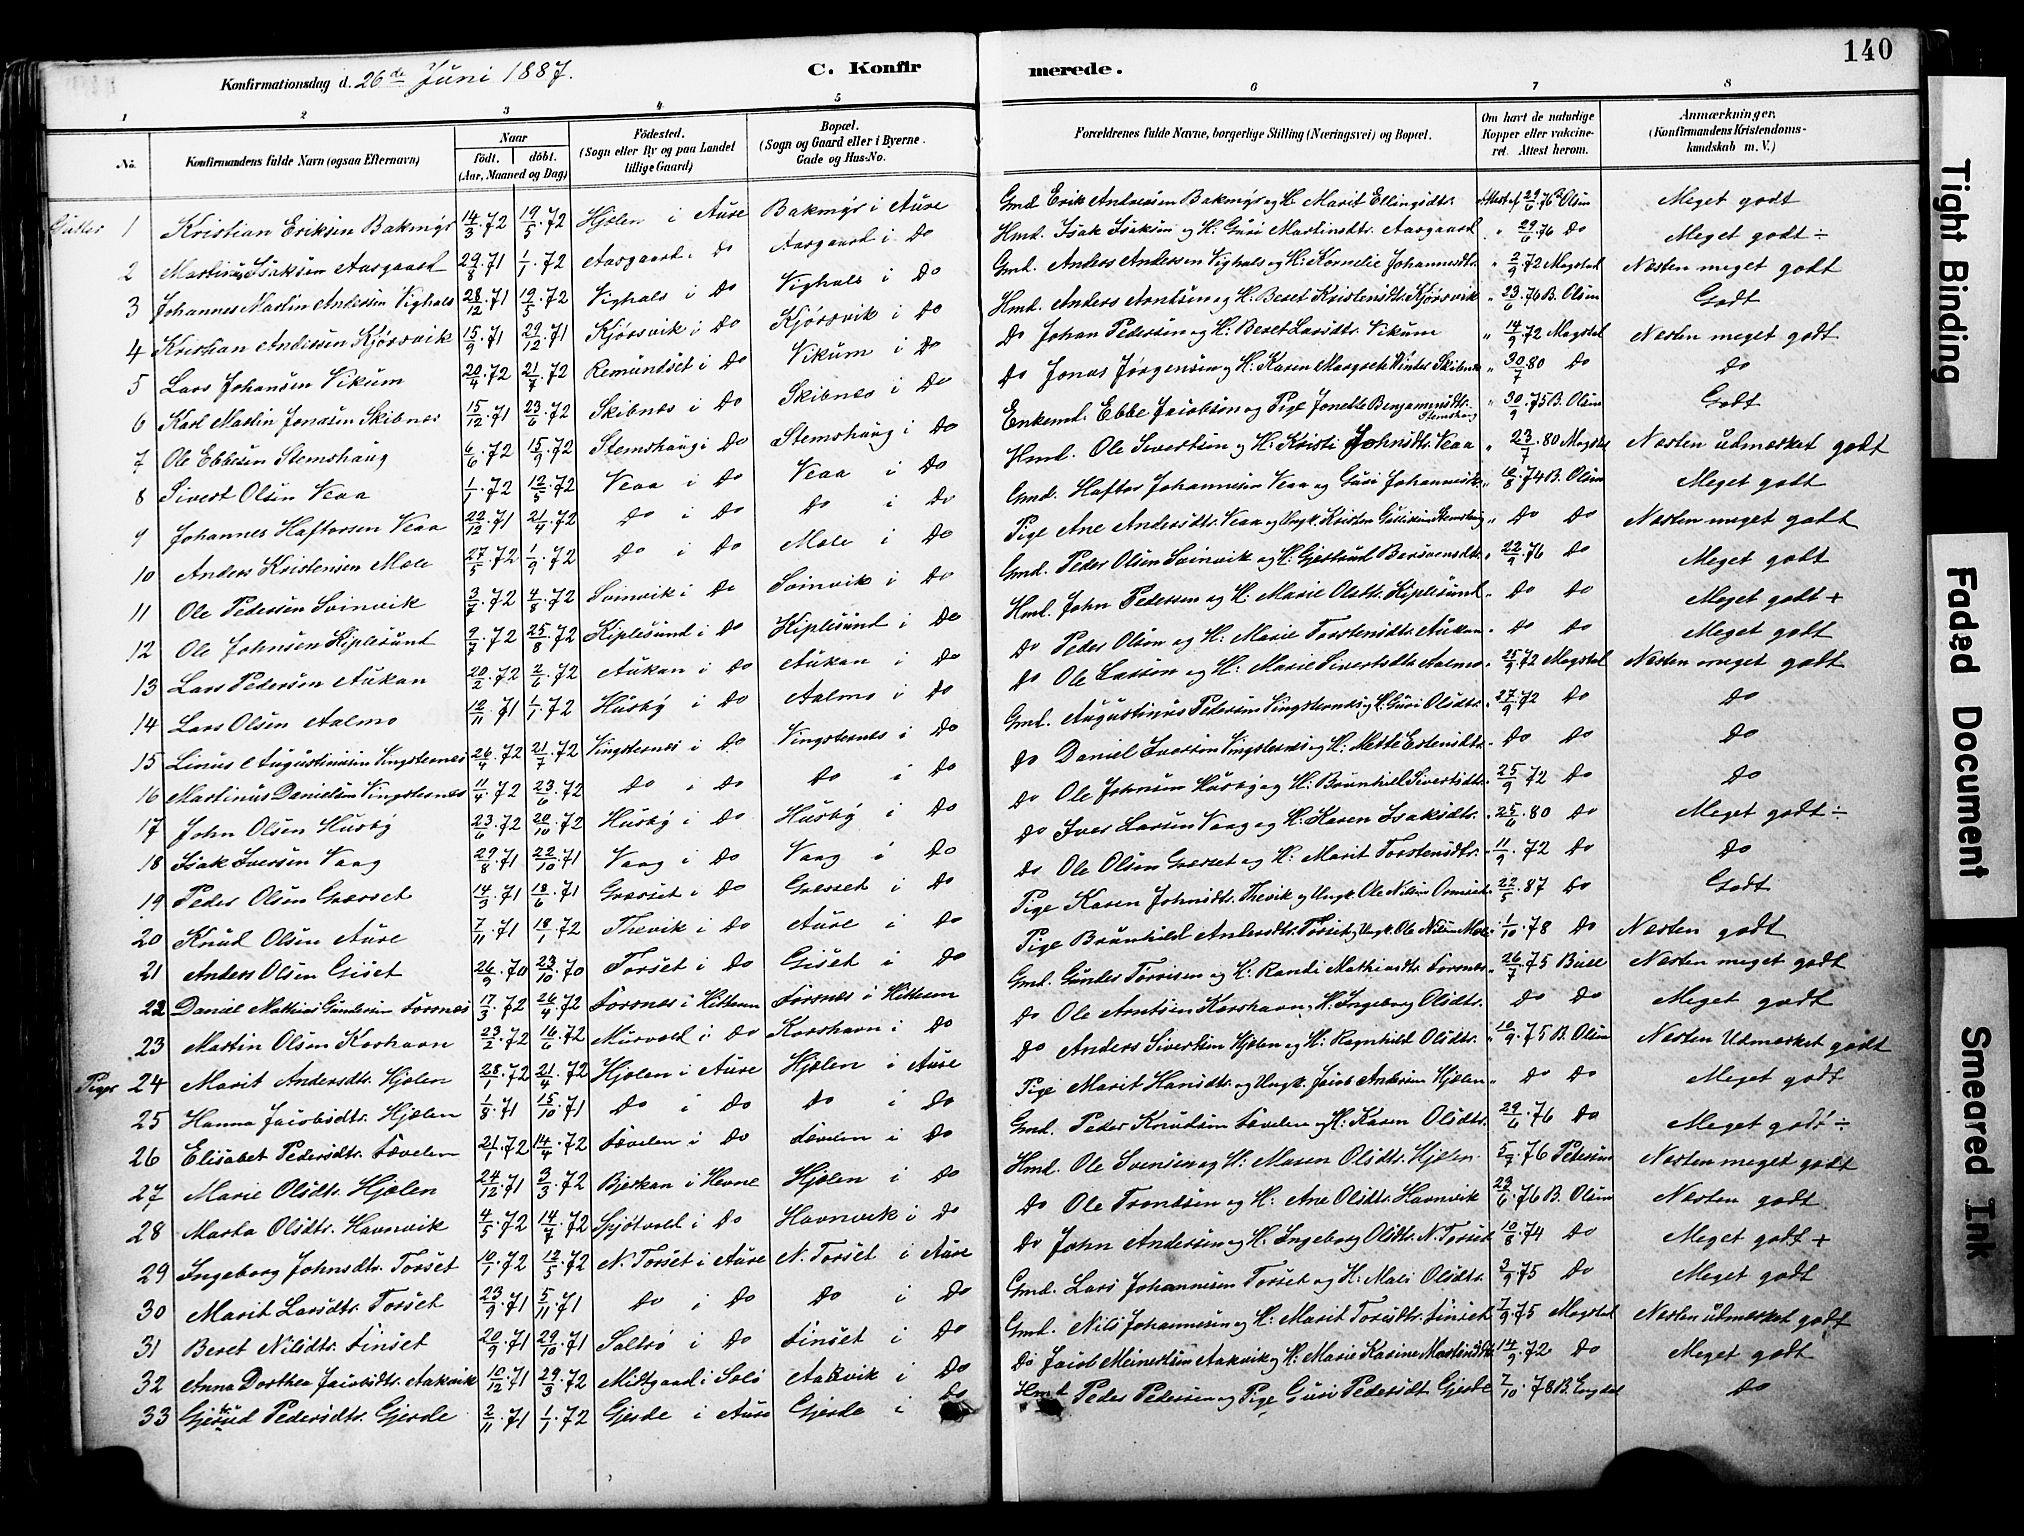 140
Konfirmationsdag d. 26de Juni 1887.
C. Konfirmerede.
1 2 3 4 5 6 7 8
No. Konfirmandens fulde Navn (ogsaa Efternavn) Naar födt. döbt. (Aar, Maaned og Dag) Födested. (Sogn eller By og paa Landet tillige Gaard) Bopæl. (Sogn og Gaard eller i Byerne Gade og Hus-No. Forældrenes fulde Navne, borgerlige Stilling (Næringsvei) og Bopæl. Om havt de naturlige Kopper eller vakcineret. Attest herom. Anmærkninger. (Konfirmandens Kristendomskundskab m. V.)
Gutter 1 Kristian Eriksen Bakmyr 14/3.72 19/5.72 Hjelen i Aure Bakmyr i Aure Gmd. Erik Andersen Bakmyr og H. Marit Ellingsdtr. Attest af 29/6.76 B. Olsen Meget godt
2 Martinus Isaksen Aasgaard 29/8.71 1/1.72 Aasgaard i Do Aasgaard i Do Hmd. Isak Isaksen og H. Guri Martinsdtr. Aasgaard " 29/6.76 Do Meget godt ÷
3 Johannes Martin Andersen Vighals 28/12.71 19/5.72 Vighals i Do Vighals i Do Gmd. Anders Andersen Vighals og H. Kornelie Johannesdtr. " 2/9.72 Magstad Næsten meget godt
4 Kristian Andersen Kjörsvik 15/9.71 29/12.71 Kjörsvik i Do Kjörsvik i Do Hmd. Anders Arntsen og H. Beret Kristensdtr. Kjörsvik " 23/6.76 B. Olsen Godt
5 Lars Johansen Vikum 20/4.72 21/7.72 Remundset i Do Vikum i Do Do Johan Pedersen og H. Beret Larsdtr. Vikum " 14/9.72 Magstad Næsten meget godt
6 Karl Martin Jonasen Skibnes 15/12.71 23/6.72 Skibnes i Do Skibnes i Do Do Jonas Jörgensen og H. Karen Margrete Winter Skibnes " 30/7.80 Do Do
7 Ole Ebbesen Stemshaug 6/6.72 15/9.72 Stemshaug i Do Stemshaug i Do Enkemd. Ebbe Jacobsen og Pige Jonette Benjaminsdtr. Stemshaug " 30/9.75 B. Olsen Godt
8 Sivert Olsen Veaa 1/1.72 12/5.72 Veaa i Do Veaa i Do Hmd. Ole Sivertsen og H. Kristi Johnsdtr. Veaa " 23/7.80 Magstad Næsten udmærket godt
9 Johannes Haftorsen Veaa 22/12.71 21/4.72 Do i Do Do i Do Gmd. Haftor Johannesen Veaa og Guri Johannesdtr. " 18/8.74 B. Olsen Meget godt
10 Anders Kristensen Mele 27/5.72 1/9.72 Do i Do Mele i Do Pige Ane Andersdtr. Veaa og Ungk. Kristen Stemshaug " Do Do Næsten meget godt
11 Ole Pedersen Svinvik 3/7.72 4/8.72 Svinvik i Do Svinvik i Do Gmd. Peder Olsen Svinvik og H. Gjertrud Bersvensdtr. " 22/9.76 Do Meget godt
12 Ole Johnsen Kiplesund 9/7.72 25/8.72 Kiplesund i Do Kiplesund i Do Hmd. John Pedersen og H. Marie Olsdtr. Kiplesund " Do Do Meget godt +
13 Lars Pedersen Aukan 20/2.72 2/6.72 Aukan i Do Aukan i Do Do Peder Olsen og H. Marie Torstensdtr. Aukan " Do Do Meget godt
14 Lars Olsen Aalmo 12/11.71 1/1.72 Husby i Do Aalmo i Do Do Ole Larsen og H. Marie Sivertsdtr. Aalmo " 25/9.72 Magstad Næsten meget godt
15 Linus Augustinusen Vingsternes 26/4.72 21/7.72 Vingsternes i Do Vingsternes i Do Gmd. Augustinus Pedersen Vingsternes og H. Guri Olsdtr. " 27/9.72 Do Do
16 Martinus Danielsen Vingsternes 11/4.72 23/6.72 Do i Do Do i Do Do Daniel Iversen Vingsternes og H. Mette Estensdtr. " Do Do Do
17 John Olsen Husby 23/6.72 20/10.72 Husby i Do Husby i Do Do Ole Johnsen Husby og H. Brunhild Sivertsdtr. " 25/9.72 Do Do
18 Isak Iversen Vaag 29/8.71 22/10.71 Vaag i Do Vaag i Do Do Iver Larsen Vaag og H. Karen Isaksdtr. " 25/6.80 Do Meget godt ÷
19 Peder Olsen Grærset 14/3.71 18/6.71 Grærset i Do Grærset i Do Do Ole Olsen Grærset og H. Marit Torstensdtr. " 11/9.72 Do Do
20 Knud Olsen Aure 7/11.71 18/1.72 Thevik i Do Aure i Do Pige Karen Johnsdtr. Thevik og Ungk. Ole Nilsen " 22/5.87 Do Godt
21 Anders Olsen Giset 26/9.70 23/10.70 Torset i Do Giset i Do Pige Brunhild Andersdtr. Torset og Ungk. Ole Nilsen Mele " 1/10.78 Do Næsten godt
22 Daniel Mathias Gundersen Forsnes 17/3.72 26/4.72 Forsnes i Hitteren Forsnes i Hitteren Gmd. Gunder Torrisen og H. Randi Mathiasdtr. Forsnes " 26/7.75 Buse Næsten meget godt
23 Martin Olsen Korshavn 23/2.72 16/6.72 Murvold i Do Korshavn i Do Do Ole Arntsen Korshavn, H. Ingeborg Olsdtr. Do Do Meget godt
Piger 24 Marit Andersdtr. Hjelen 28/1.72 21/4.72 Hjelen i Aure Hjelen i Aure Do Anders Sivertsen Hjelen og H. Ragnhild Olsdtr. " 10/9.75 B. Olsen Næsten Udmærket godt
25 Hanna Jacobsdtr. Hjelen 1/8.71 15/10.71 Do i Do Do i Do Pige Marit Hansdtr. og Ungk. Jacob Andersen Hjelen " Do Do Meget godt
26 Elisabet Pedersdtr. Lævelen 21/1.72 14/4.72 Lævelen i Do Lævelen i Do Gmd. Peder Knudsen Lævelen og H. Karen Olsdtr. 29/6.76 Do Meget godt ÷
27 Marie Olsdtr. Hjelen 24/12.71 3/3.72 Bjerkan i Hevne Hjelen i Do Hmd. Ole Svensen og H. Maren Olsdtr. Hjelen 5/7.76 Petersen Næsten meget godt
28 Marta Olsdtr. Havnvik 4/5.72 14/7.72 Spjötvold i Do Havnvik i Do Do Ole Trondsen og H. Ane Olsdtr. Havnvik 23/6.76 B. Olsen Næsten godt
29 Ingeborg Johnsdtr. Torset 10/1.72 12/5.72 N. Torset i Aure N. Torset i Aure Do John Andersen og H. Ingeborg Olsdtr. N. Torset 10/8.74 Do Meget godt +
30 Marit Larsdtr. Torset 23/9.71 5/11.71 Do i Do Do i Do Gmd. Lars Johannesen Torset og H. Mali Olsdtr. 3/9.75 Do Meget godt
31 Beret Nilsdtr. Finset 20/9.71 29/10.71 Saltrö i Do Finset i Do Gmd. Nils Johannesen og H. Marit Toresdtr. Finset 7/9.75 Magstad Næsten udmærket godt
32 Anna Dorthea Jacobsdtr. Aakvik 10/12.71 29/3.72 Midtgaard i Solö Aakvik i Do Do Jacob Meinertsen Aakvik og H. Marie Karine Martinsdtr. 14/9.72 Do Meget godt
33 Gjertrud Pedersdtr. Gjerde 2/11.71 1/1.72 Gjerde i Aure Gjerde i Do Hmd Peder Pedersen og Pige Guri Pedersdtr Gjerde 7/10.78 B. Engdal Do
Tight Binding
Faded Document
Smeared Ink